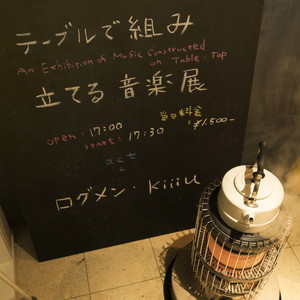 テーブルで組み
An Exhibition of Music Constructed
on Table-Top
立てる 音楽 展
open : 17:00
start : 17:30
当日料金
: ¥1,500-
act
ログメン・KiiiU